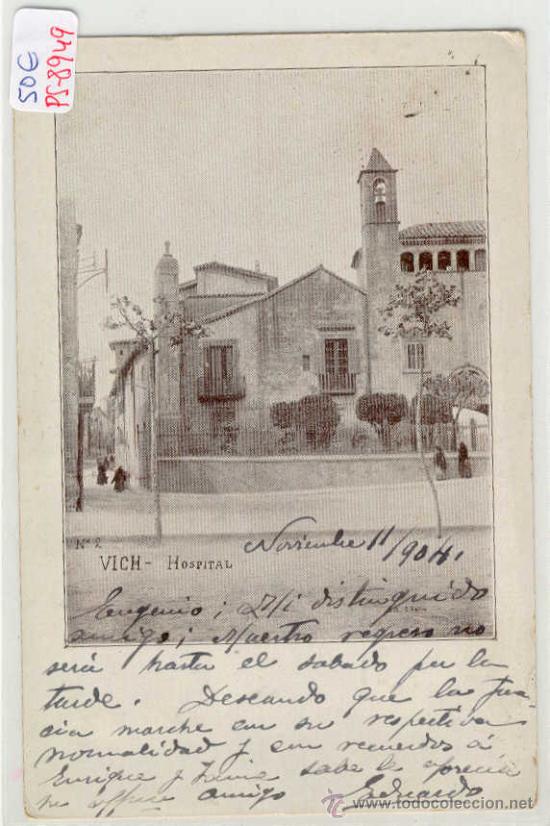 50€
PS-8949
Nº 2
VICH - HOSPITAL
Noviembre 11/904.
Eugenio; Mi distinguido
amigo; Nuestro regreso no
será hasta el sabado por la
tarde. Deseando que la
cia marche en su respectiva
normalidad y con recuerdos á
Enrique y sabe le aprecia
su amigo Eduardo
www.todocoleccion.net